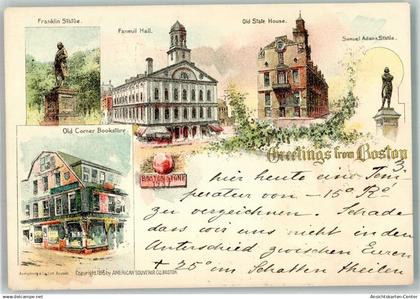 Franklin Statue.
Faneuil Hall.
Old State House.
Samuel Adams Statue.
Old Corner Bookstore.
Greetings from Boston
BOSTON STONE
1737
hier heute eine Tem
peratur von -15° R°
zu verzeichnen. Schade
dass wir uns nicht in den
Unterschied zwischen Euren
+ 25° im Schatten theilen
Copyright 1895 by AMERICAN SOUVENIR CO. BOSTON.
www.ansichtskarten-center.de
Ansichtskarten-Center.de